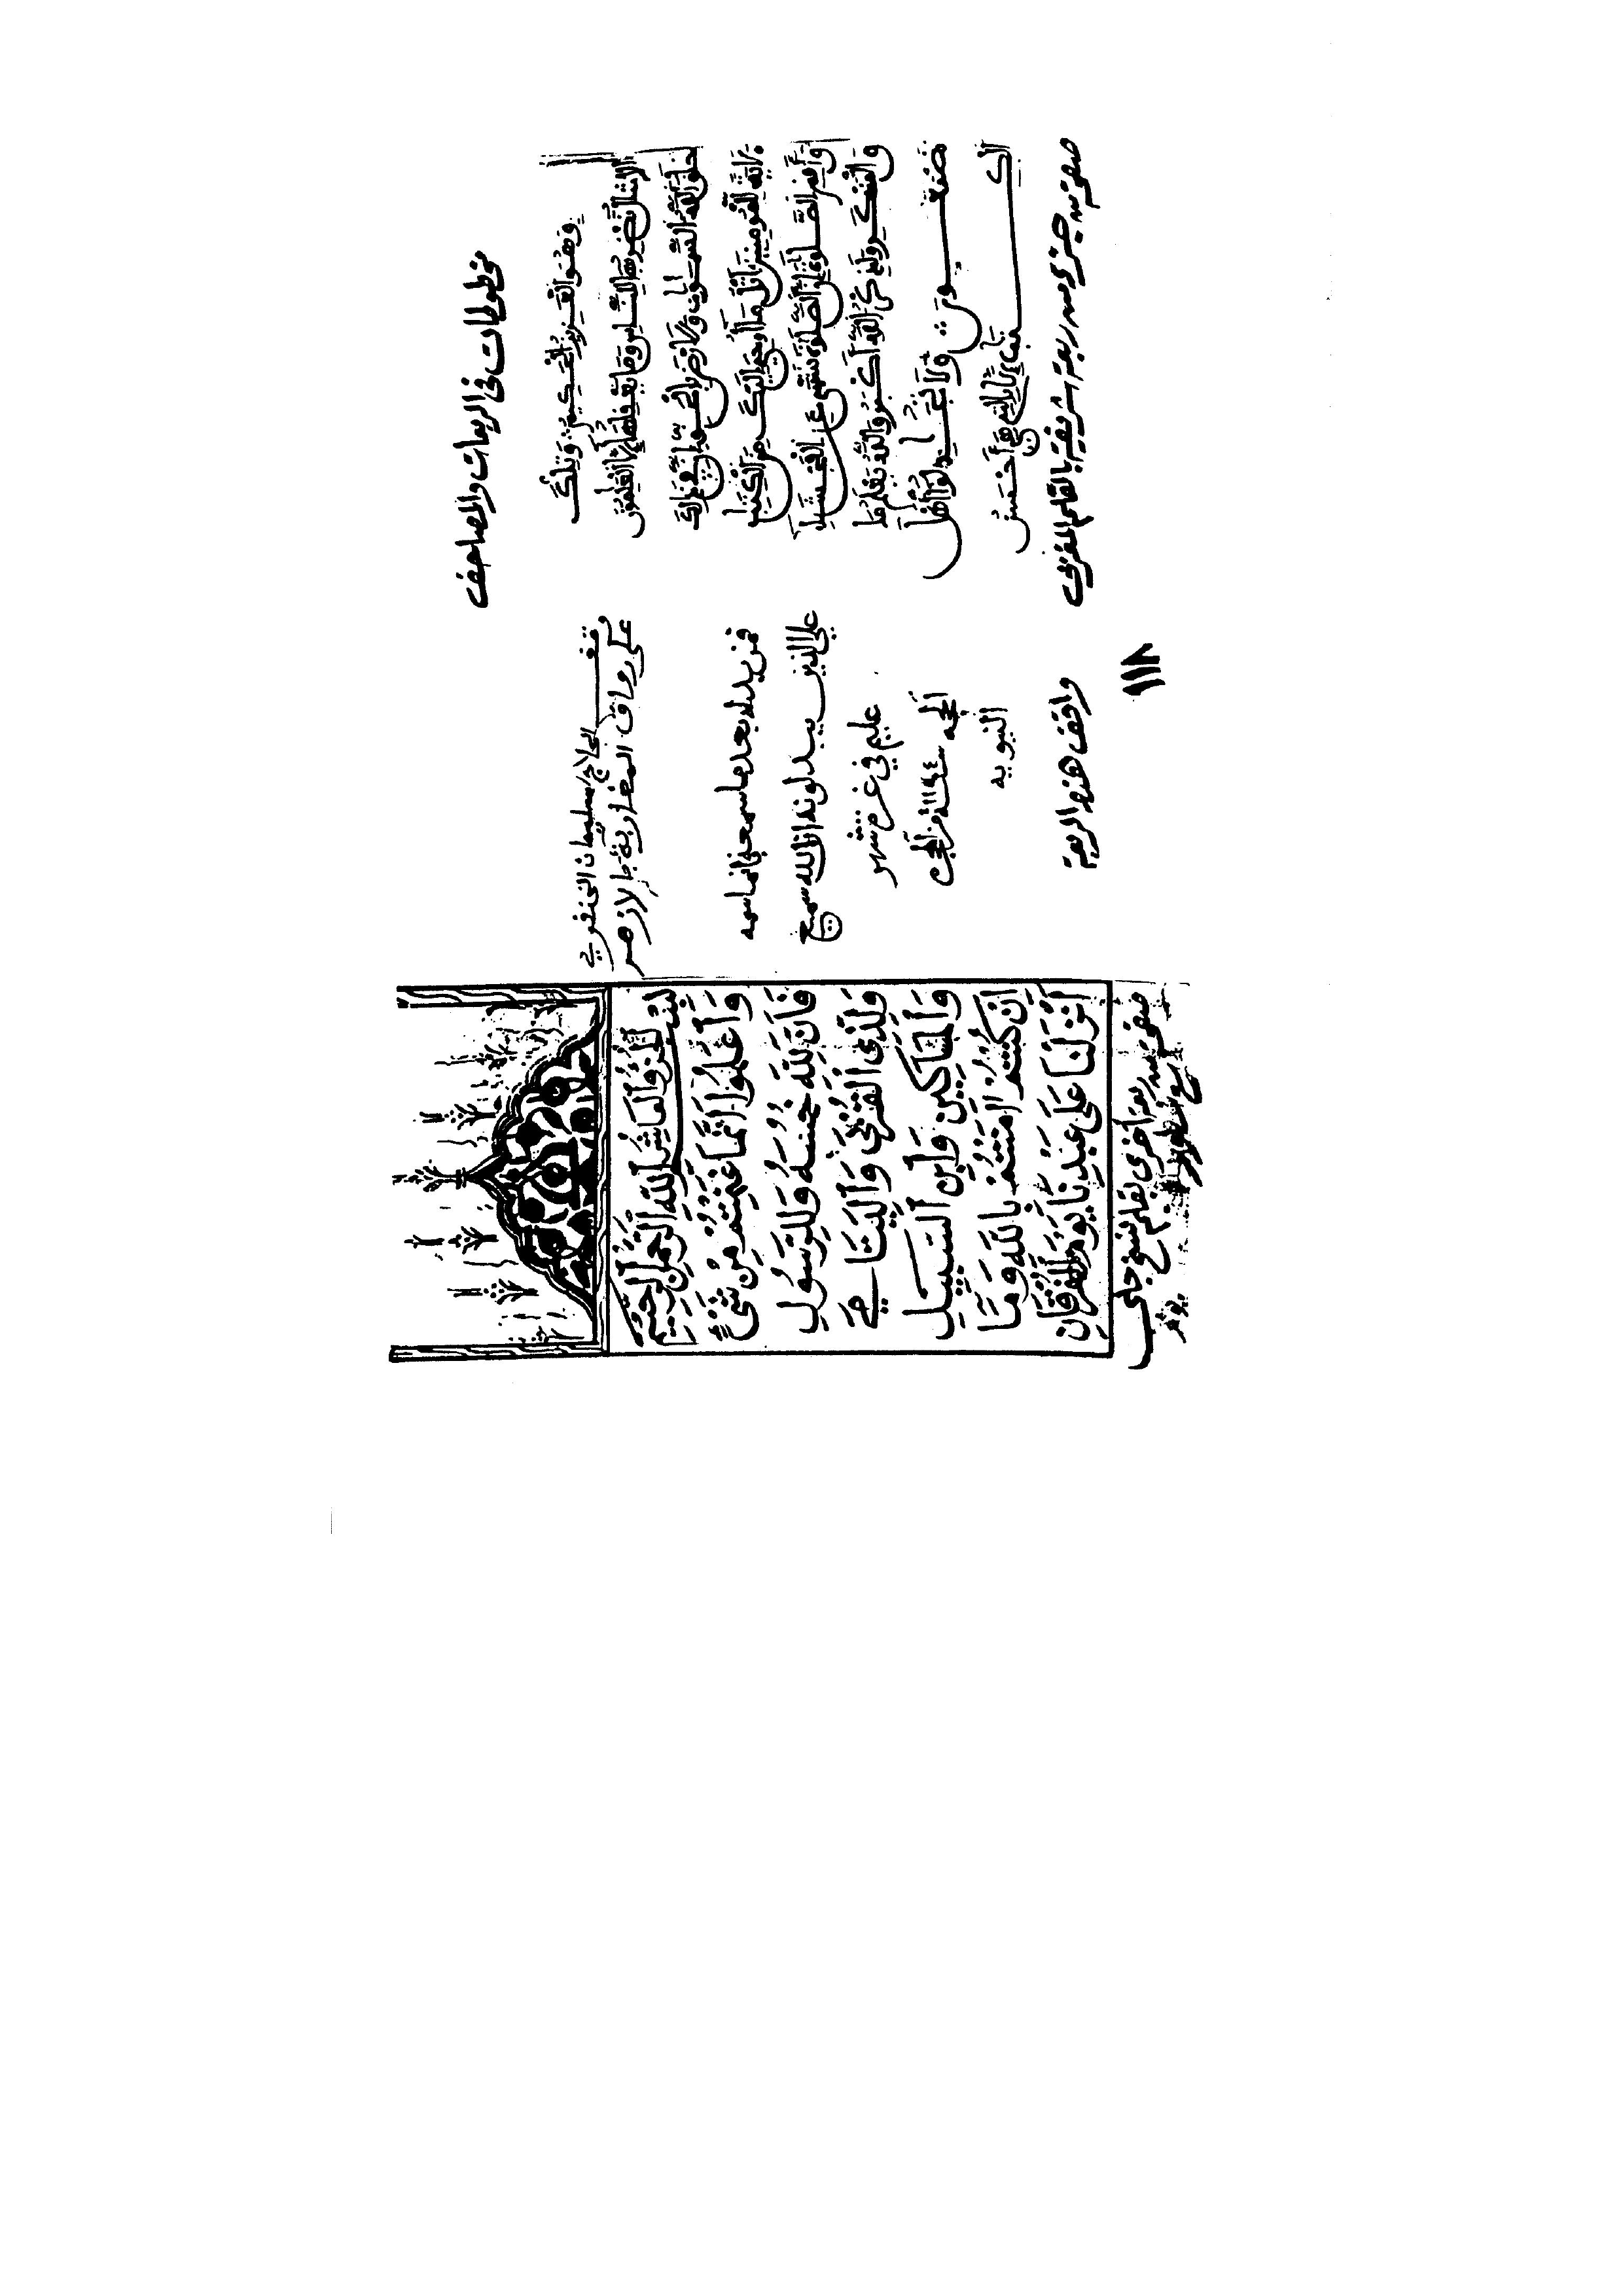 مخطوطات فى الربعات والمصاحف
وَهُوَ الْعَزِيزُ الْحَكِيمُ وَتِلْكَ
الْأَمْثَلُ نَضْرِبُهَا لِلنَّاسِ وَمَا يَعْقِلُهَا إِلَّا الْعَلِمُونَ
خَلَقَ اللَّهُ السَّمَوَتِ وَالْأَرْضَ بِالْحَقِّ إِنَّ فِي ذَلِكَ
لَأَيَةً لِّلْمُومِنِينَ اتْلُ مَا أُوحِيَ إِلَيْكَ مِنَ الْكِتَبِ
وَأَقِمِ الصَّلَوةَ إِنَّ الصَّلَوةَ تَنْهَى عَنِ الْفَحْشَاءِ
وَالْمُنكَرِ وَلَذِكْرُ اللَّهِ أَكْبَرُ وَاللَّهُ يَعْلَمُ مَا
تَصْنَعُونَ وَلَا تُجَدِلُوا أَهْلَ
الْكِتَبِ إِلَّا بِالَّتِي هِيَ أَحْسَنُ
صفحة من جزء من ربعة شريفة بالقلم المغربى
وقف الحاج سليمان الفيتوري
على رواق المغاربة بالازهر
فمن بدله بعد ما سمعه فإنما اثمه
على الذين يبدلونه ان الله سميع
عليم في غرة شهر
الحجة سنة ١١٤٤ من الهجرة
النبويه
واقف هذه الربعة
بِسْمِ اللَّهِ الرَّحْمَنِ الرَّحِيمِ
وَاعْلَمُوا أَنَّمَا غَنِمْتُمْ مِنْ شَيْءٍ
فَأَنَّ لِلَّهِ خُمُسَهُ وَلِلرَّسُولِ
وَلِذِي الْقُرْبَى وَالْيَتَامَى
وَالْمَسَاكِينِ وَابْنِ السَّبِيلِ
إِنْ كُنْتُمْ اٰمَنْتُمْ بِاللَّهِ وَمَا
أَنْزَلْنَا عَلَى عَبْدِنَا يَوْمَ الْفُرْقَانِ
صفحة من ربعة أخرى بقلم نسخ جلى
١١٨